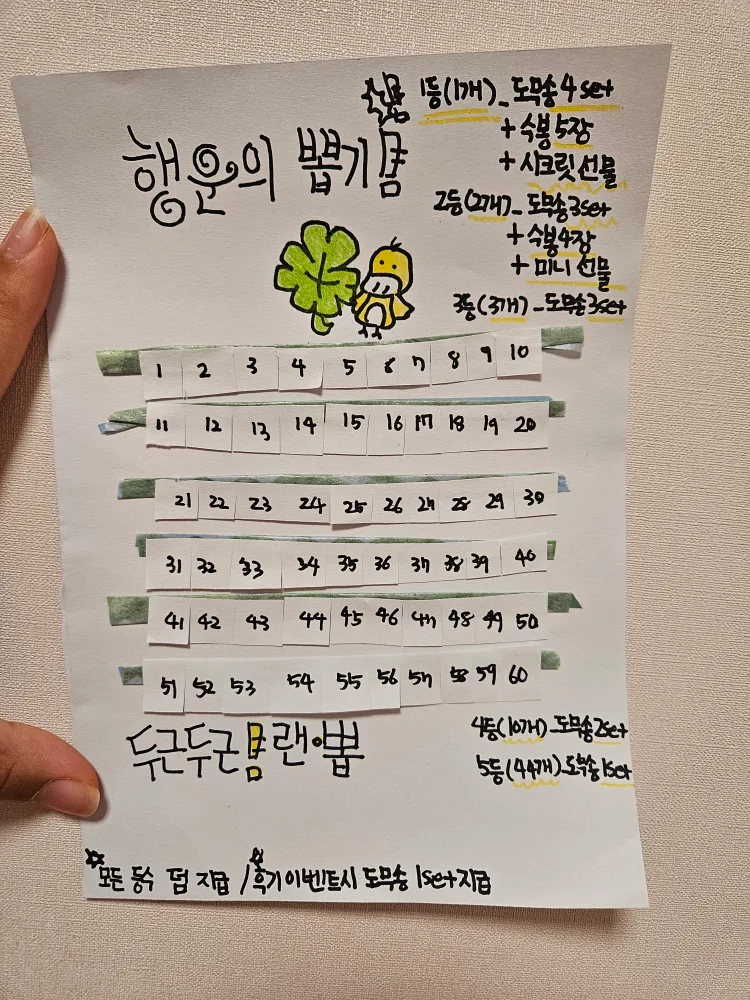 행운의 뽑기
1등(1개)_도무송 4set
+ 수봉 5장
+ 시크릿 선물
2등(2개)_도무송 3set
+ 수봉 4장
+ 미니 선물
3등(3개)_도무송 3set
1 2 3 4 5 6 7 8 9 10
11 12 13 14 15 16 17 18 19 20
21 22 23 24 25 26 27 28 29 30
31 32 33 34 35 36 37 38 39 40
41 42 43 44 45 46 47 48 49 50
51 52 53 54 55 56 57 58 59 60
두근두근 랜•뽑
4등(10개)_도무송 2set
5등(44개)_도무송 1set
모든 등수 덤 지급 / 후기 이벤트시 도무송 1set 지급